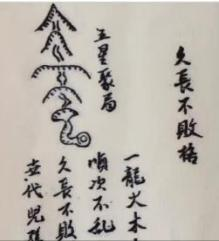 久長不敗格
五星聚局
一龍火木
順次不乱
久長不敗
世代兒